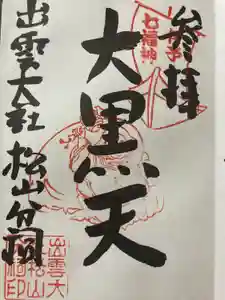 奉拝
七福神
大黒天
出雲大社 松山分祠
出雲大
社松山
分祠印